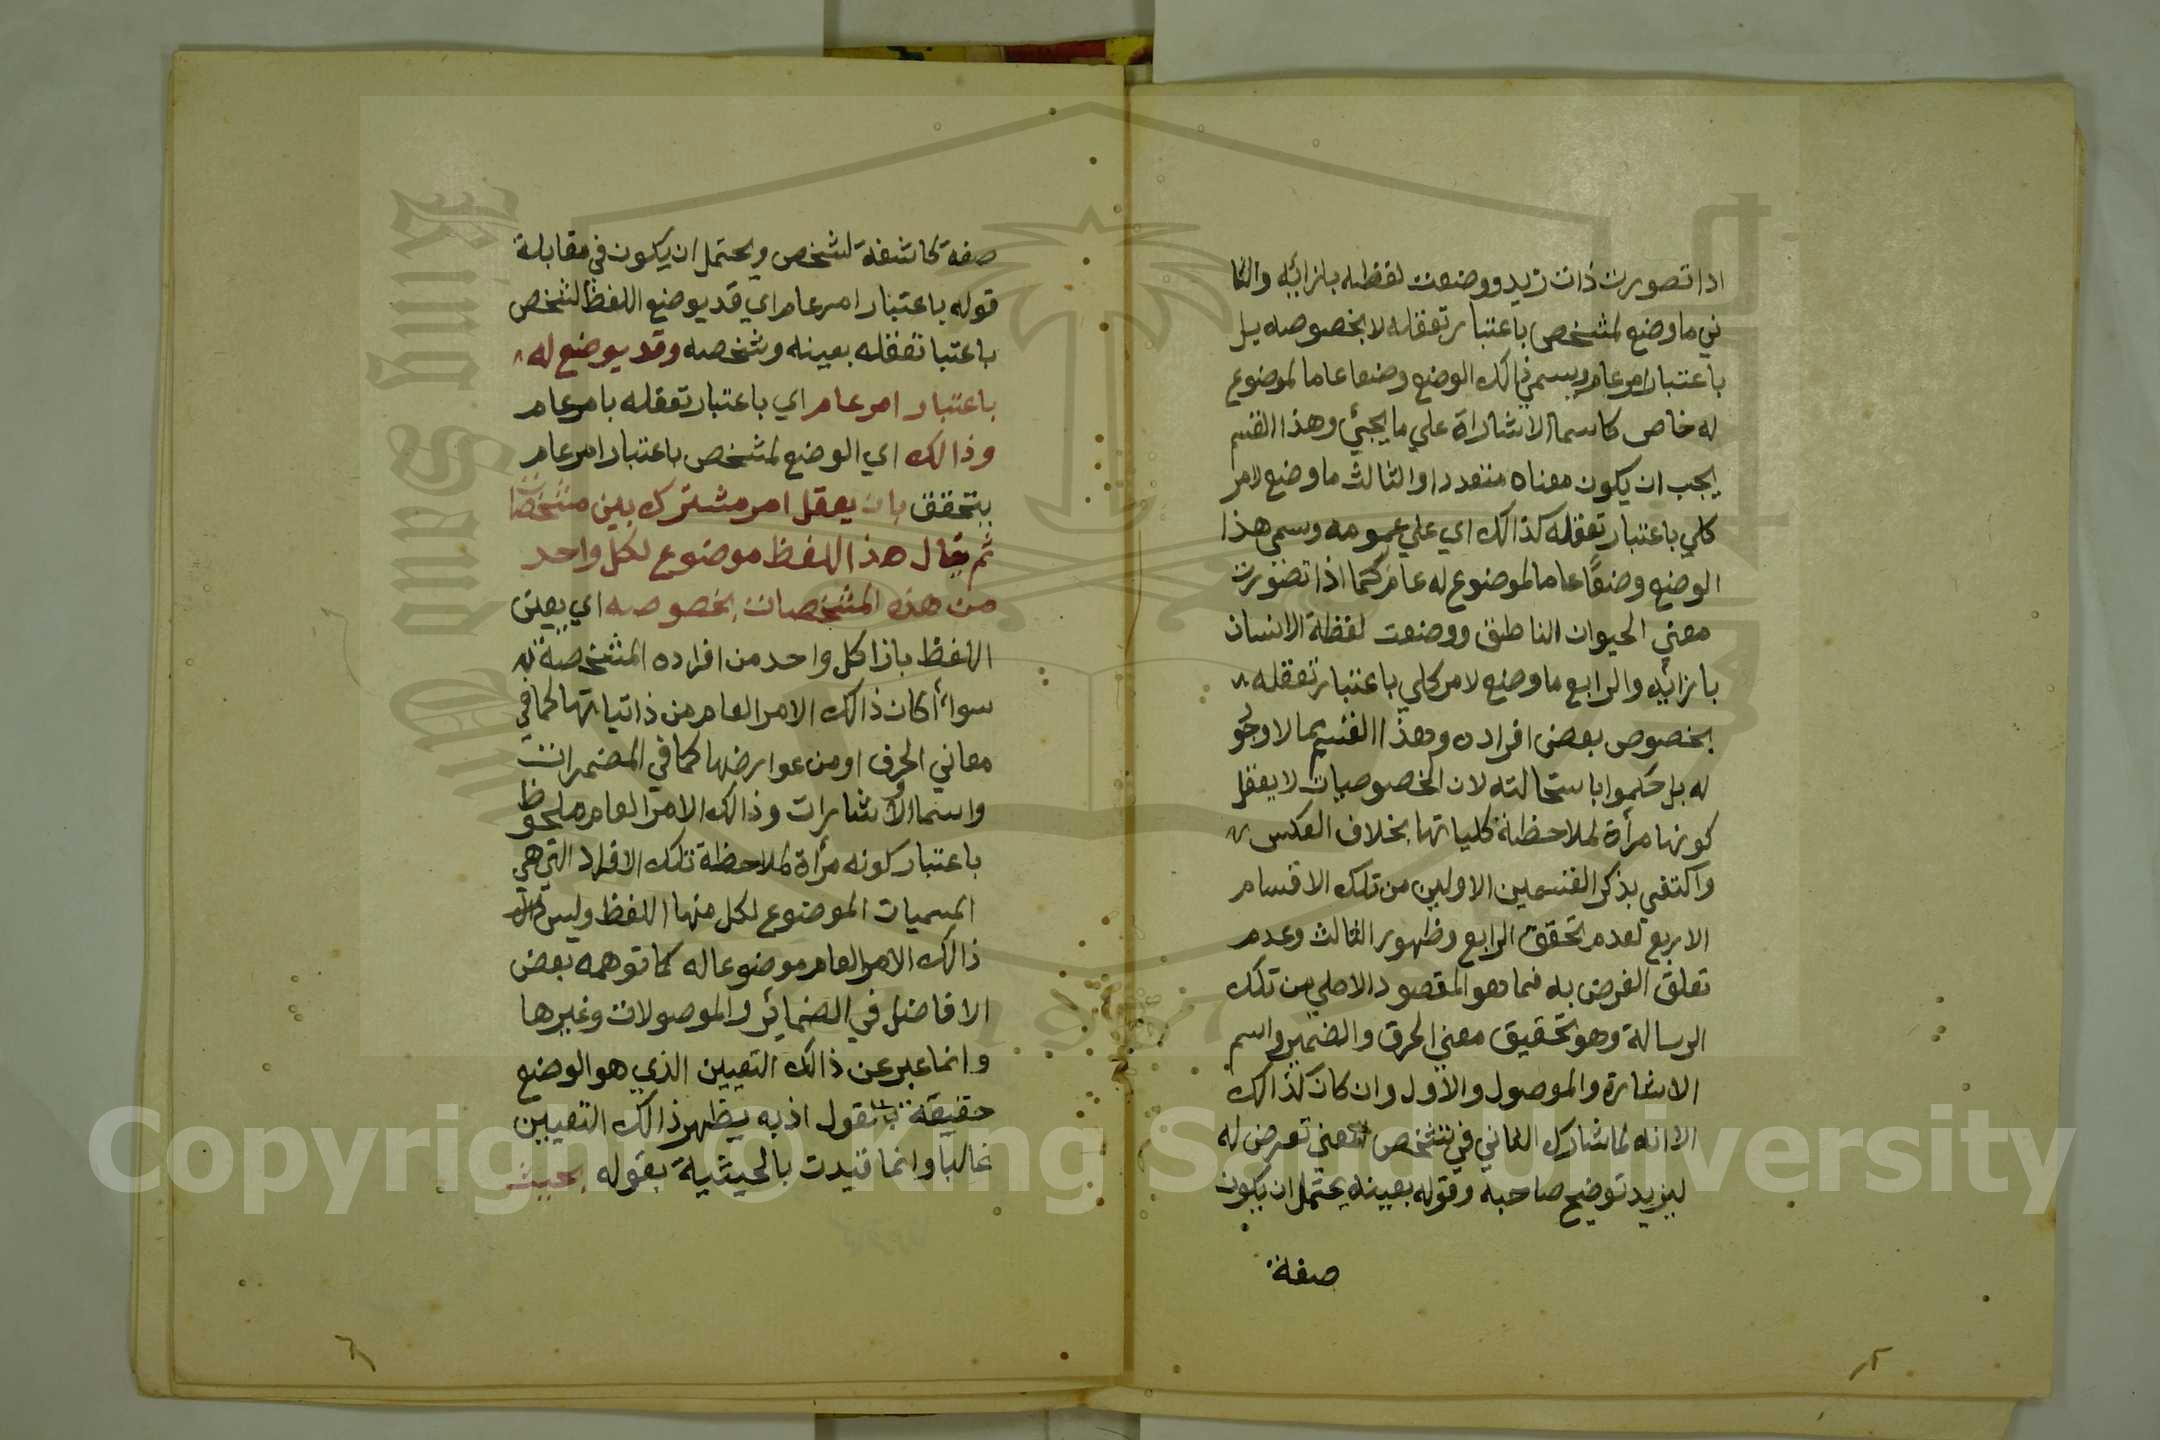 اذا تصورت ذات زيد ووضعت لفظه بازائه والثا
ني ما وضع لمشخص باعتبار تعقله لا بخصوصه بل
باعتبار امر عام ويسمي ذالك الوضع وضعا عاما لموضوع
له خاص كاسما الاشاراة علي ما يجئ وهذا القسم
يجب ان يكون معناه متعددا والثالث ما وضع لامر
كلي باعتبار تعقله كذالك اي علي عمومه وسمي هذا
الوضع وضعًا عاما لموضوع له عام كما اذا تصورت
معني الحيوان الناطق ووضعت لفظة الانسان
بازائه والرابع ما وضع لامر كلي باعتبار تعقله
بخصوص بعض افراده وهذا القسم مما لا وجو
له بل حكموا باستحالته لان الخصوصيات لا يعقل
كونها مرأة لملاحظة كلياتها بخلاف العكس
واكتفي بذكر القسمين الاولين من تلك الاقسام
الاربع لعدم تحقق الرابع وظهور الثالث وعدم
تعلق الغرض به فما هو المقصود الاصلي من تلك
الرسالة وهو تحقيق معني الحرف والضمير واسم
الاشارة والموصول والاول وان كان كذالك
الا انه لما شارك الثاني في تشخص المعني تعرض له
ليزيد توضيح صاحبه وقوله بعينه يحتمل ان يكون
صفة
صفة كاشفة لشخص ويحتمل ان يكون في مقابلة
قوله باعتبار امر عام اي قد يوضع اللفظ لشخص
باعتبا تعقله بعينه وشخصه وقد يوضع له
باعتبار امر عام اي باعتبار تعقله بامر عام
وذالك اي الوضع لمشخص باعتبار امر عام
يتحقق بان يعقل امر مشترك بين مشخصات
ثم يقال هذا اللفظ موضوع لكل واحد
من هذه المشخصات بخصوصه اي يعين
اللفظ بازا كل واحد من افراده المشخصة
سواأ كان ذالك الامر العام من ذاتياتها كما في
معاني الحرف او من عوارضها كما في المضمرات
واسما الاشارات وذالك الامر العام ملحوظ
باعتبار كونه مرأة لملاحظة تلك الافراد التي هي
المسميات الموضوع لكل منها اللفظ وليس
ذالك الامر العام موضوعا له كما توهمه بعض
الافاضل في الضمائر والموصولات وغيرها
وانما عبر عن ذالك التعيين الذي هو الوضع
حقيقة بالقول اذ به يظهر ذالك التعيين
غالبا وانما قيدت بالحيثية بقوله بحيث
Copyright © King Saud University
King Saud University
1957